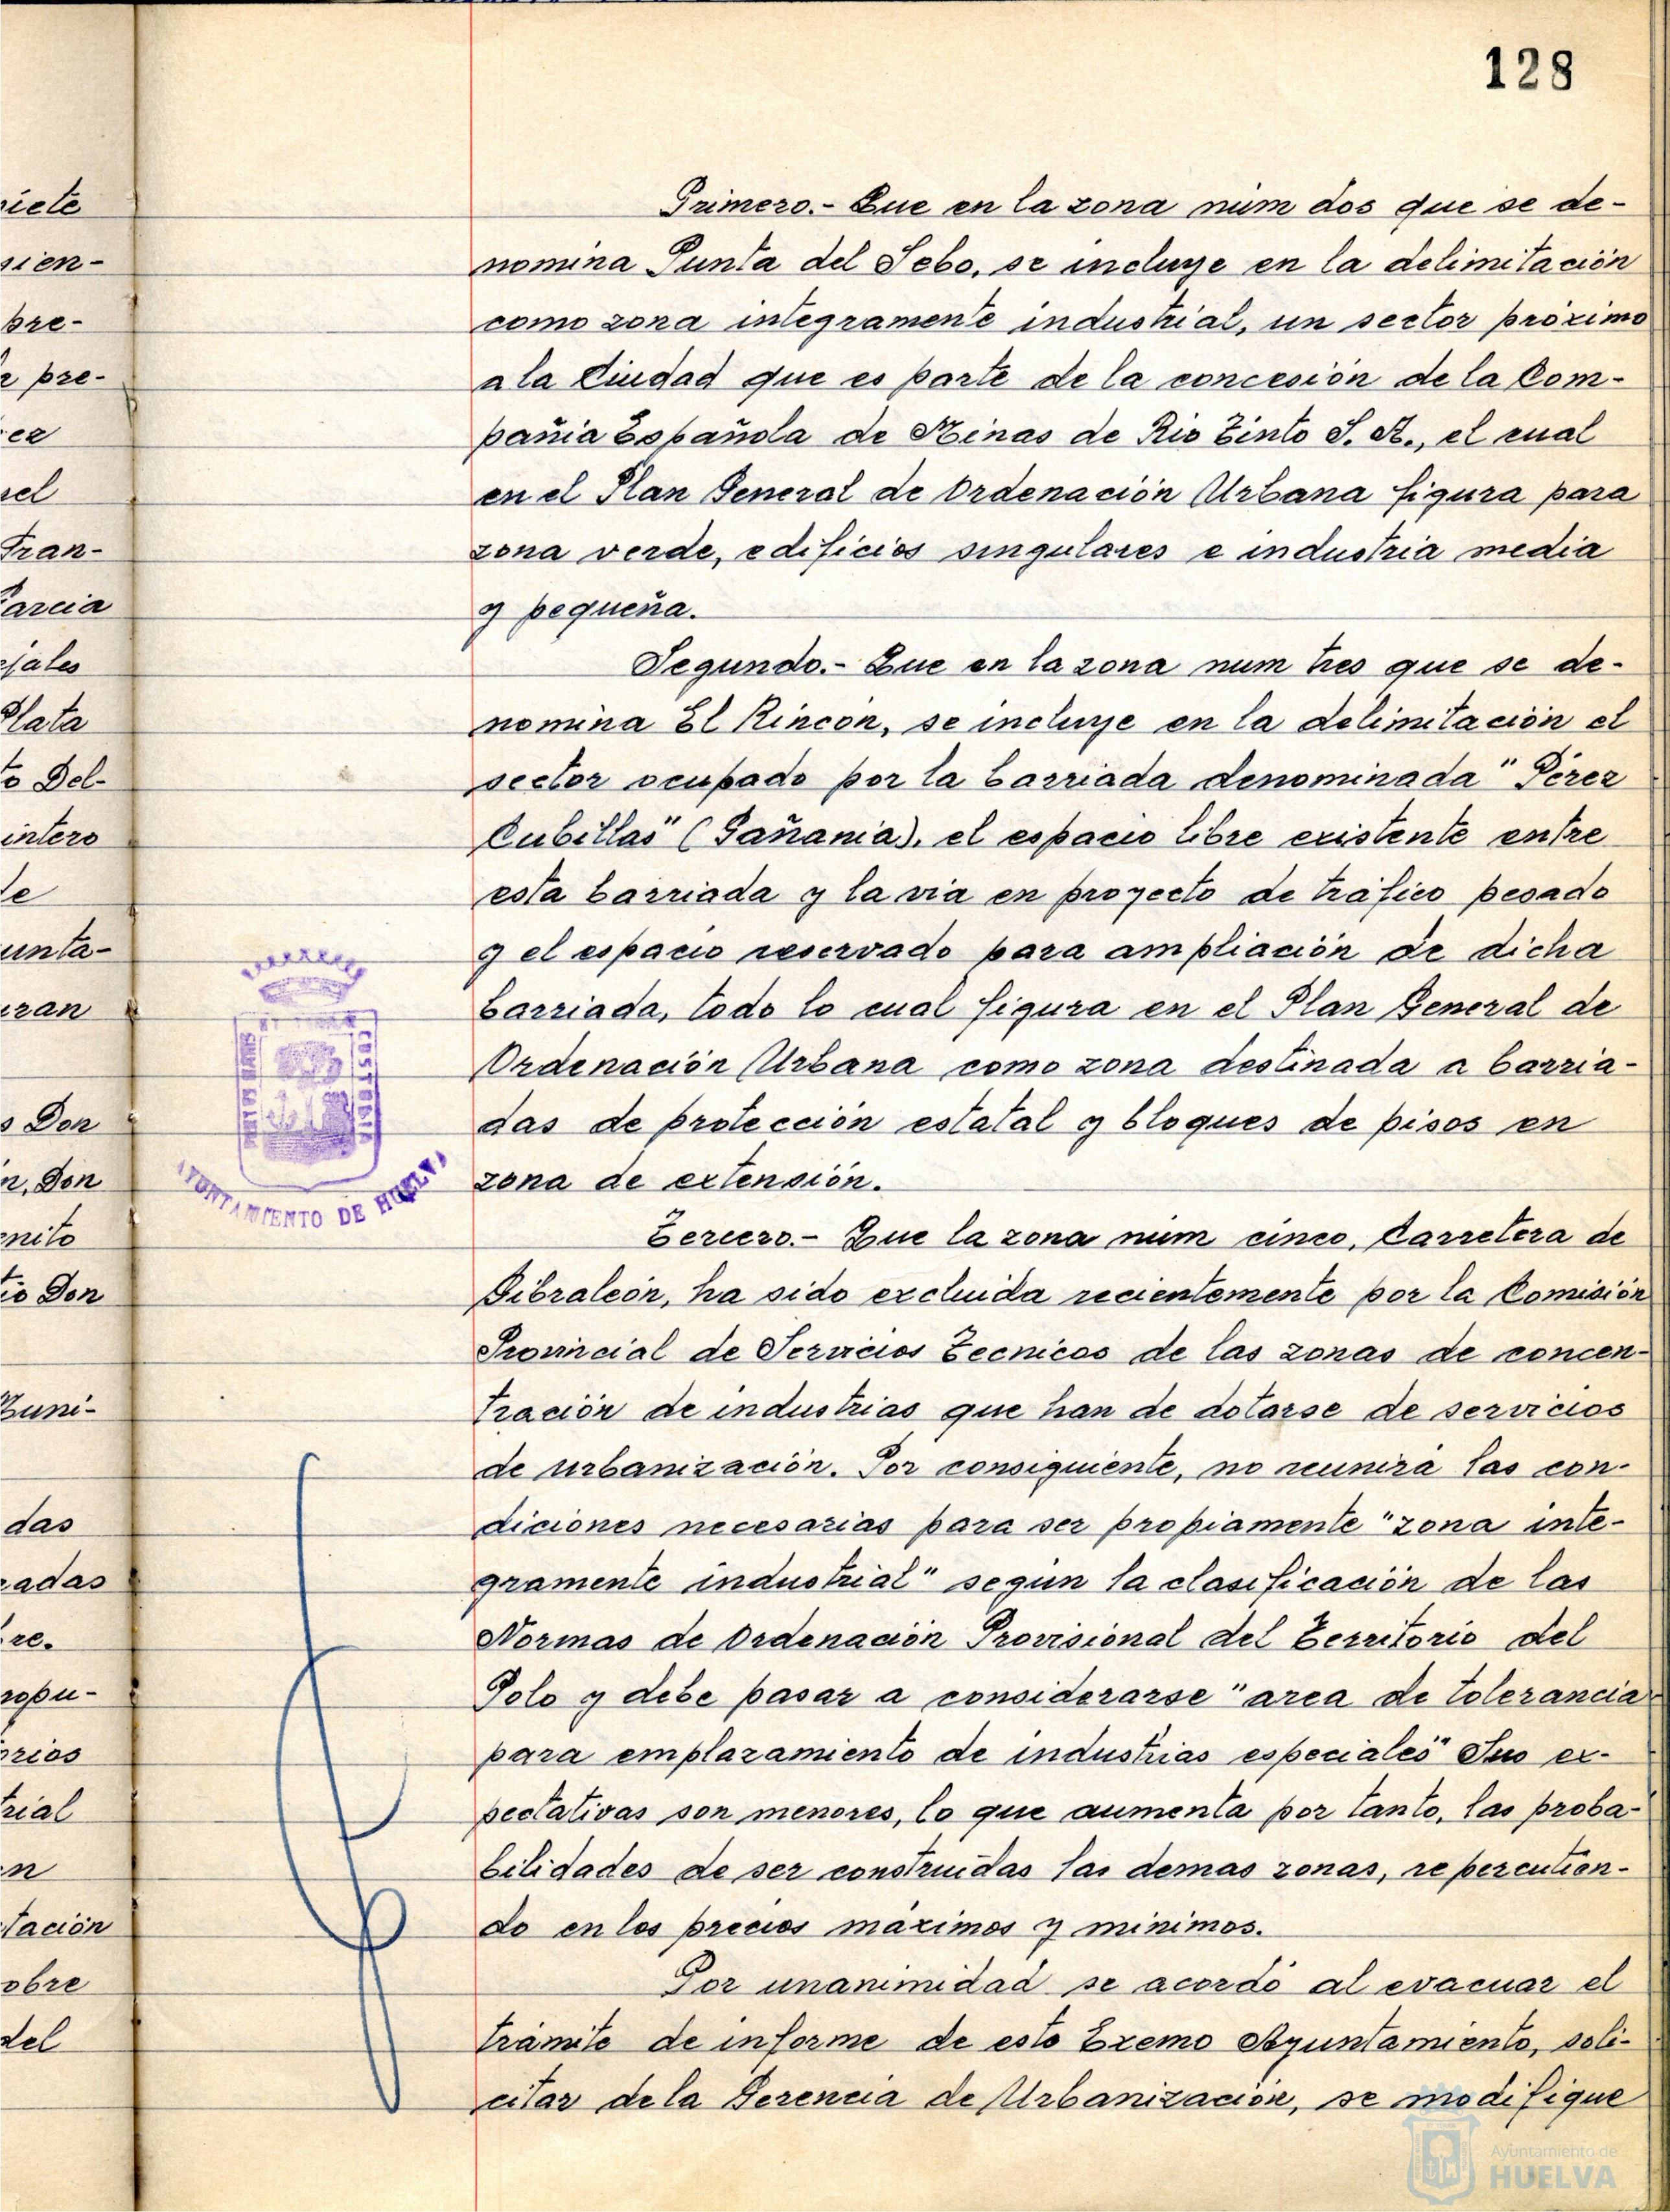 128
Primero.- Que en la zona núm dos que se de-
nomina Punta del Sebo, se incluye en la delimitación
como zona integramente industrial, un sector próximo
a la Ciudad que es parte de la concesión de la Com-
pañia Española de Minas de Rio Tinto S. A., el cual
en el Plan General de Ordenación Urbana figura para
zona verde, edificios singulares e industria media
y pequeña.
Segundo.- Que en la zona num tres que se de-
nomina El Rincón, se incluye en la delimitación el
sector ocupado por la barriada denominada "Pérez
Cubillas" (Gañania), el espacio libre existente entre
esta barriada y la via en proyecto de tráfico pesado
y el espacio reservado para ampliación de dicha
barriada, todo lo cual figura en el Plan General de
Ordenación Urbana como zona destinada a barria-
das de protección estatal y bloques de pisos en
zona de extensión.
Tercero.- Que la zona núm cinco, Carretera de
Gibraleón, ha sido excluida recientemente por la Comisión
Provincial de Servicios Tecnicos de las zonas de concen-
tración de industrias que han de dotarse de servicios
de urbanización. Por consiguiente, no reunirá las con-
diciones necesarias para ser propiamente "zona inte-
gramente industrial" según la clasificación de las
Normas de Ordenación Provisional del Territorio del
Polo y debe pasar a considerarse "area de tolerancia
para emplazamiento de industrias especiales" Sus ex-
pectativas son menores, lo que aumenta por tanto, las proba-
bilidades de ser construidas las demas zonas, repercutien-
do en los precios máximos y minimos.
Por unanimidad se acordó al evacuar el
trámite de informe de este Excmo Ayuntamiento, soli-
citar de la Gerencia de Urbanización, se modifique
AYUNTAMIENTO DE HUELVA
PORTUS MARIS
ET TERRAE
CUSTODIA
iete
sien-
bre-
pre-
ez
sel
Fran-
Garcia
ejales
Plata
to Del-
intero
de
unta-
uran
s Don
n, Don
nito
io Don
Muni-
das
radas
re.
ropu-
orios
rial
en
tación
obre
del
Ayuntamiento de
HUELVA